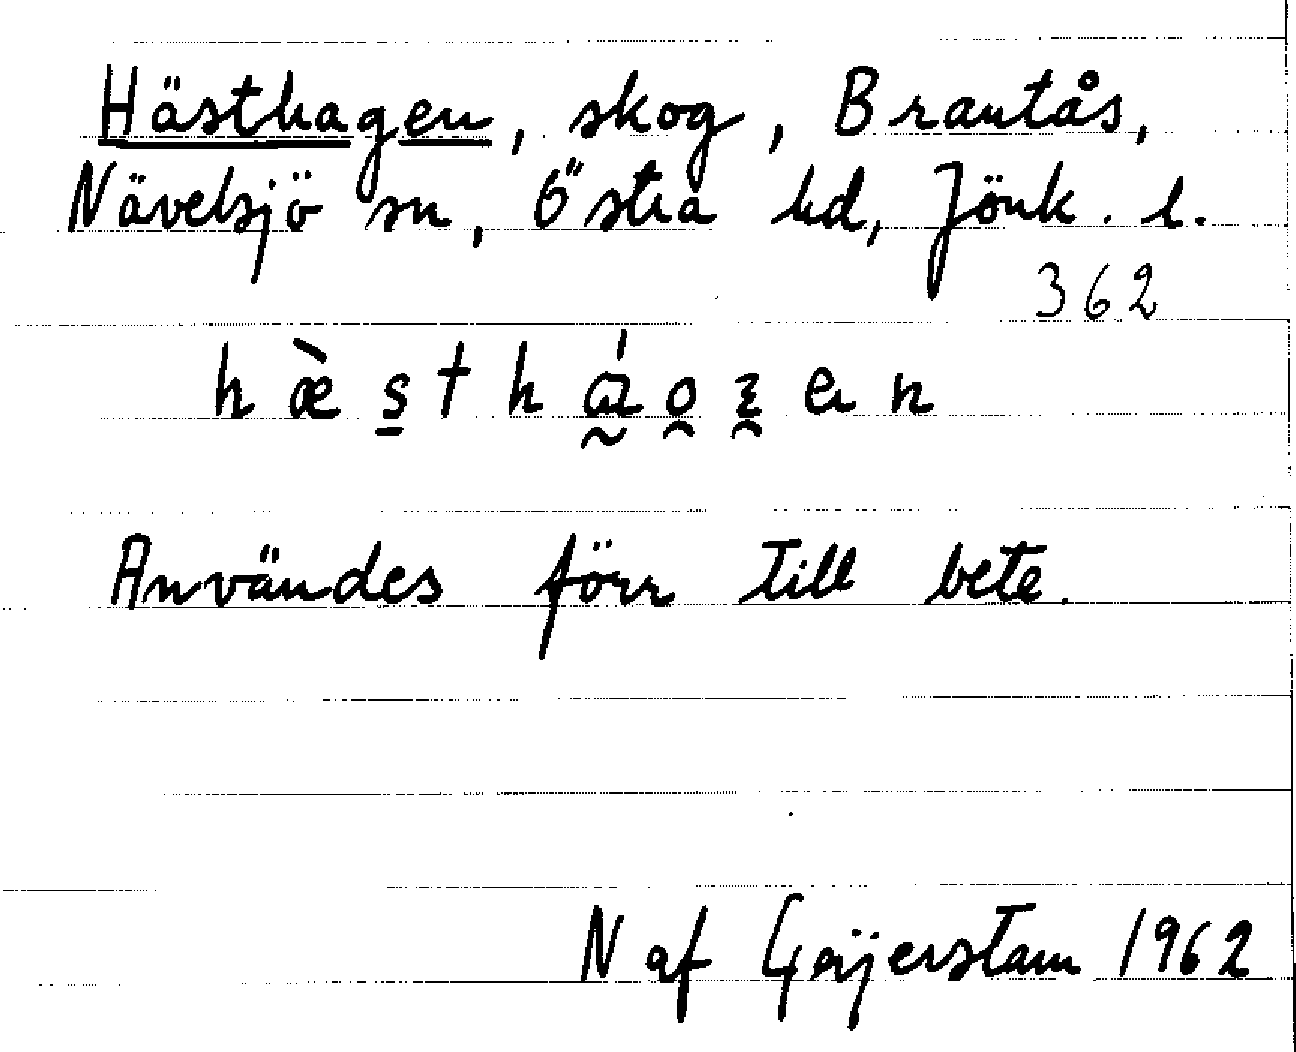 Hästhagen, skog, Brantås,
Nävelsjö sn, Östra hd, Jönk. l.
362
Användes förr till bete.
N af Geijerstam 1962